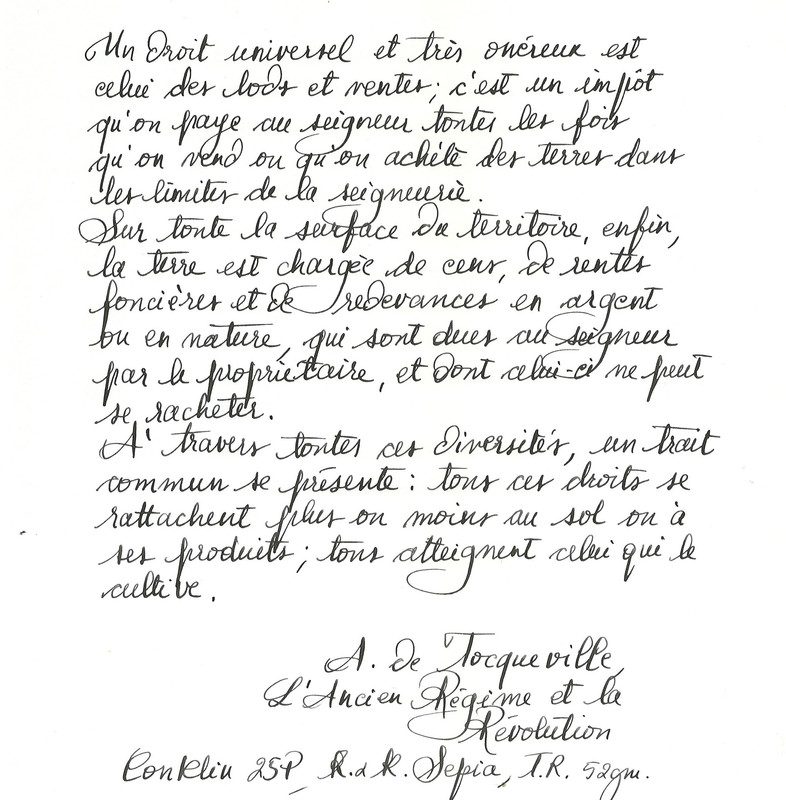 Un droit universel et très onéreux est
celui des lods et ventes; c'est un impôt
qu'on paye au seigneur toutes les fois
qu'on vend ou qu'on achète des terres dans
les limites de la seigneurie.
Sur toute la surface du territoire, enfin,
la terre est chargée de cens, de rentes
foncières et de redevances en argent
ou en nature, qui sont dues au seigneur
par le propriétaire, et dont celui-ci ne peut
se racheter.
A' travers toutes ces diversités, un trait
commun se présente : tous ces droits se
rattachent plus ou moins au sol ou à
ses produits ; tous atteignent celui qui le
cultive.
A. de Tocqueville,
L'Ancien Régime et la
Révolution
Conklin 25P, R. & K. Sepia, T.R. 52gm.